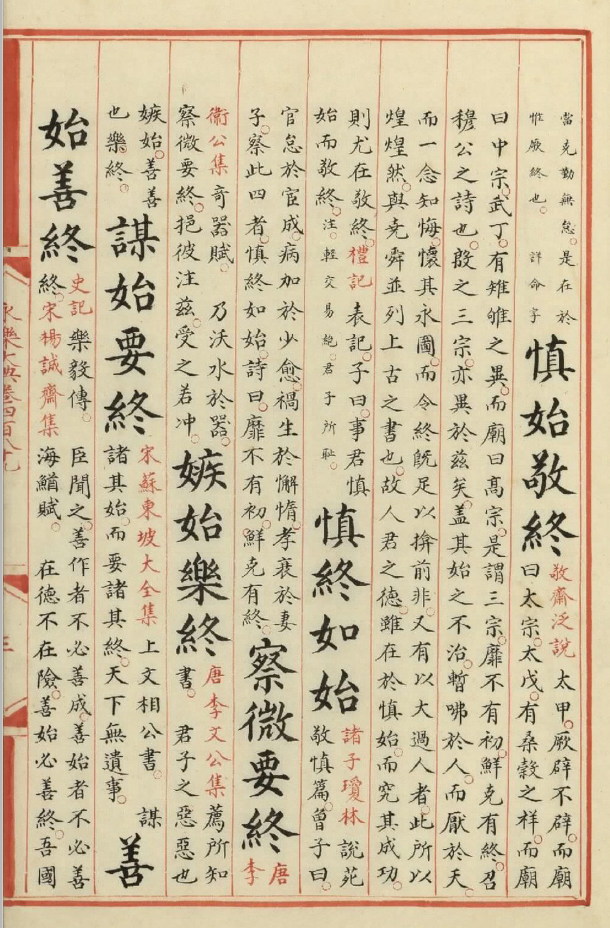 當克勤無怠。是在於
惟厥終也。 詳命字
慎始敬終
敬齋泛說 太甲。厥辟不辟。而廟
曰太宗。太戊。有桑榖之祥。而廟
曰中宗。武丁。有雉雊之異。而廟曰高宗。是謂三宗。靡不有初。鮮克有終。召
穆公之詩也。殷之三宗。亦異於兹矣。蓋其始之不治。暫咈於人。而厭於天。
而一念知悔。懷其永圖。而令終旣足以揜前非。又有以大過人者。此所以
煌煌然。與堯舜並列上古之書也。故人君之德。雖在於慎始。而究其成功。
則尤在敬終。禮記 表記。子曰。事君慎
始而敬終。注。輕交易絶。君子所恥。
慎終如始
諸子瓊林 說苑
敬慎篇。曾子曰。
官怠於宦成。病加於少愈。禍生於懈惰。孝衰於妻
子。察此四者。慎終如始。詩曰。靡不有初。鮮克有終。
察微要終
唐
李
衞公集 奇器賦。 乃沃水於器。
察微要終。挹彼注兹。受之若冲。
嫉始樂終
唐李文公集 薦所知
書。 君子之惡惡也
嫉始。善善
也樂終。
謀始要終
宋蘇東坡大全集 上文相公書。 謀
諸其始。而要諸其終。天下無遺事。
善
始善終
史記 樂毅傳。 臣聞之。善作者不必善成。善始者不必善
終。宋楊誠齋集 海鰌賦。 在德不在險。善始必善終。吾國
永樂大典卷四百八十九
三